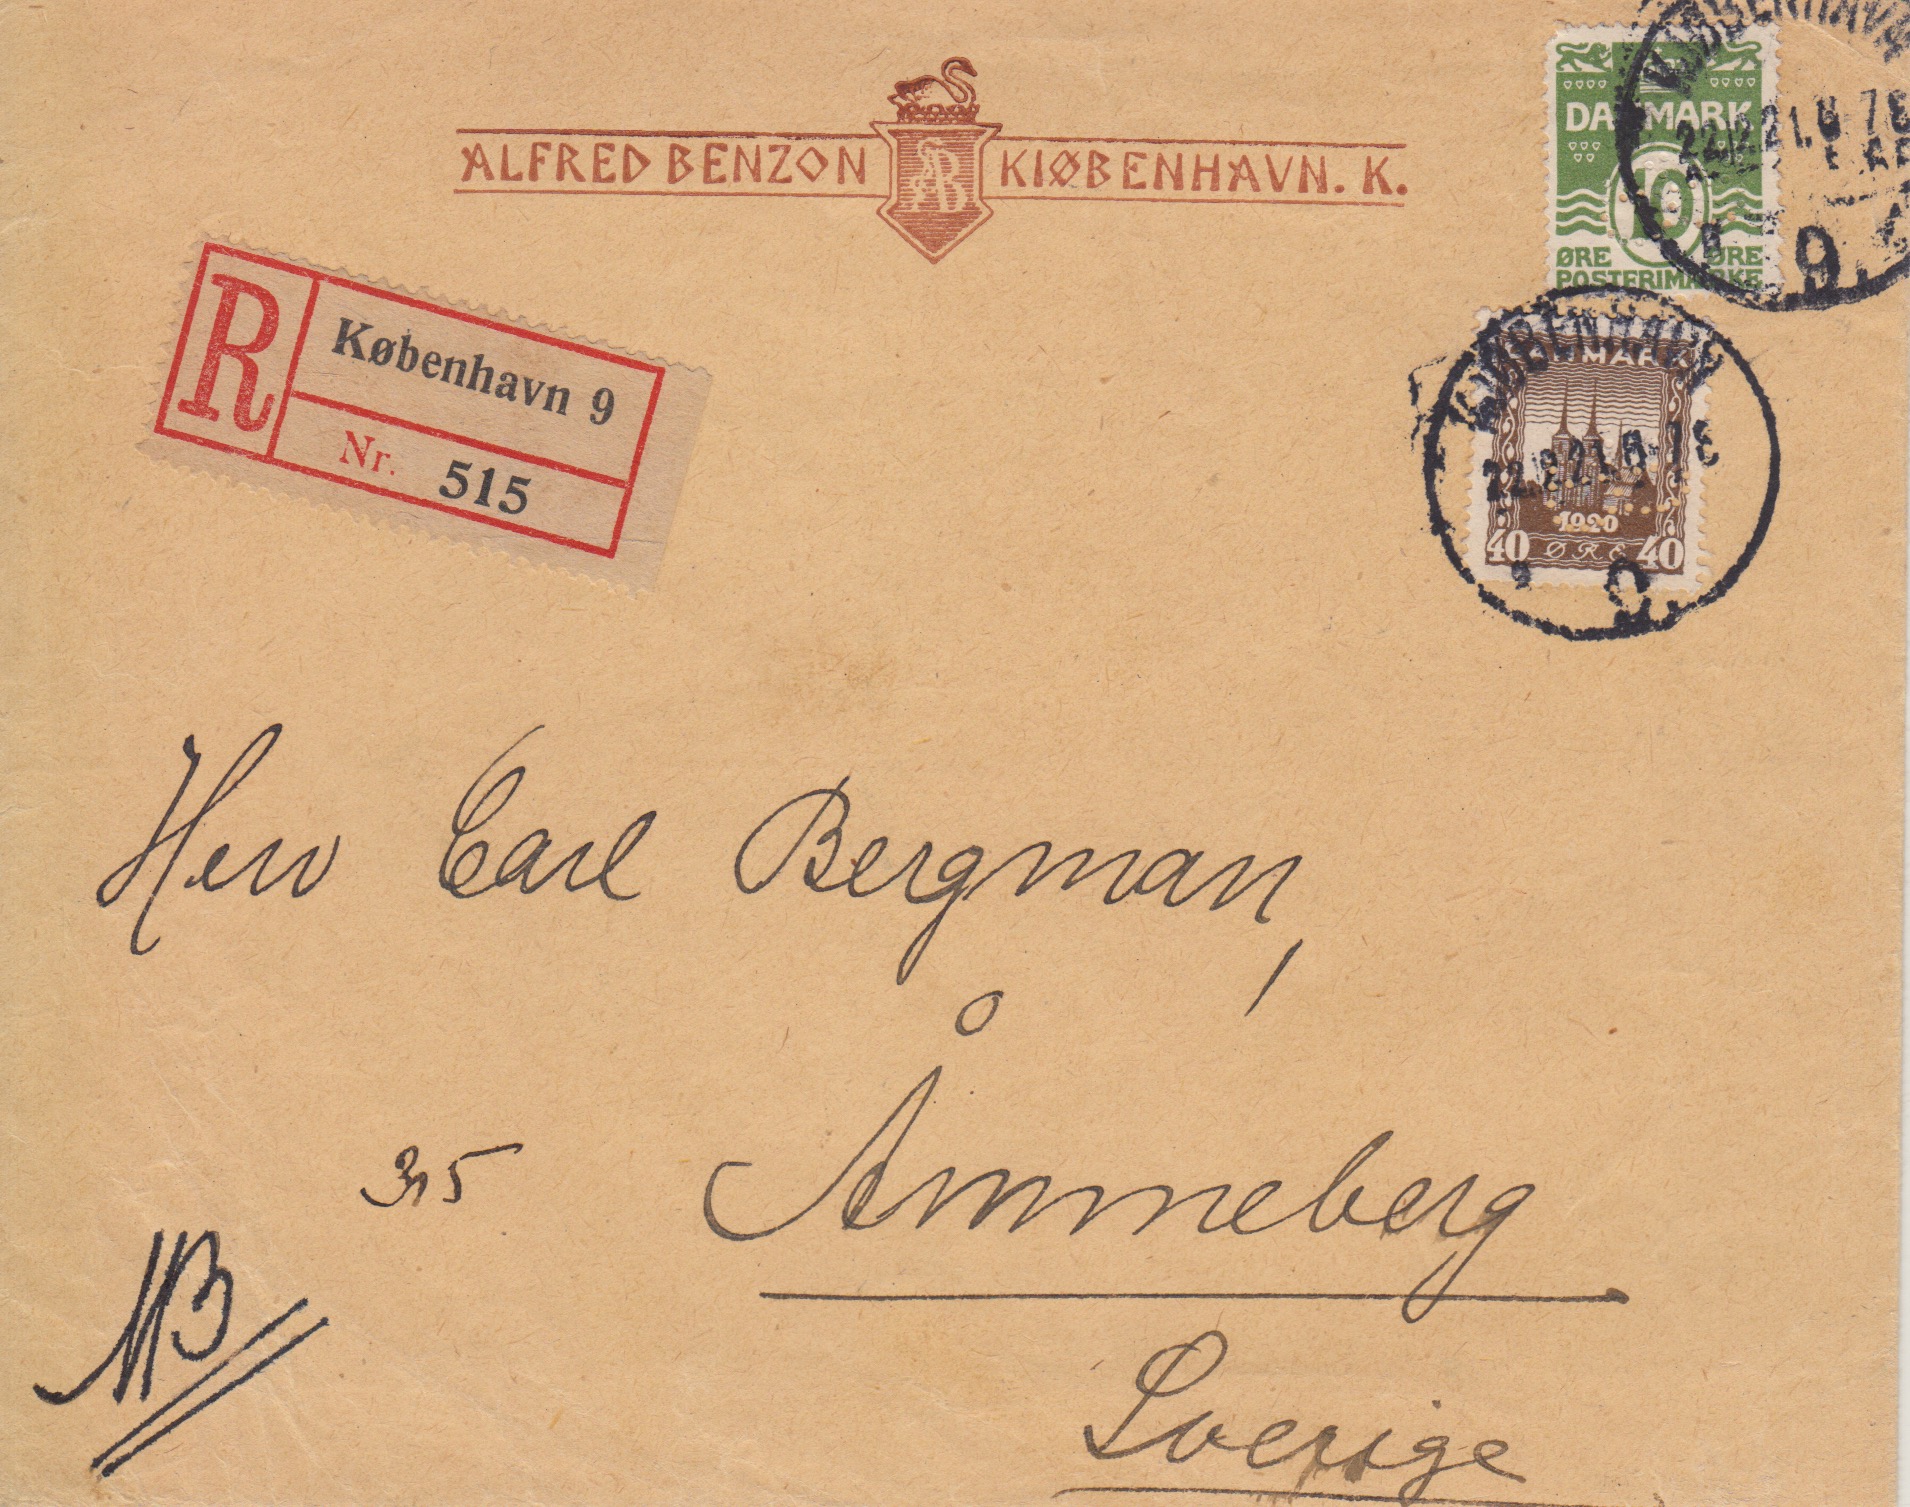 ALFRED BENZON KIØBENHAVN. K.
AB
DANMARK
10
ØRE ØRE
POSTFRIMÆRKE
KØBENHAVN
9.
R
København 9
Nr. 515
KØBENHAVN
DANMARK
1920
40 ØRE 40
Herr Carl Bergman,
Åmmeberg
315
Sverige